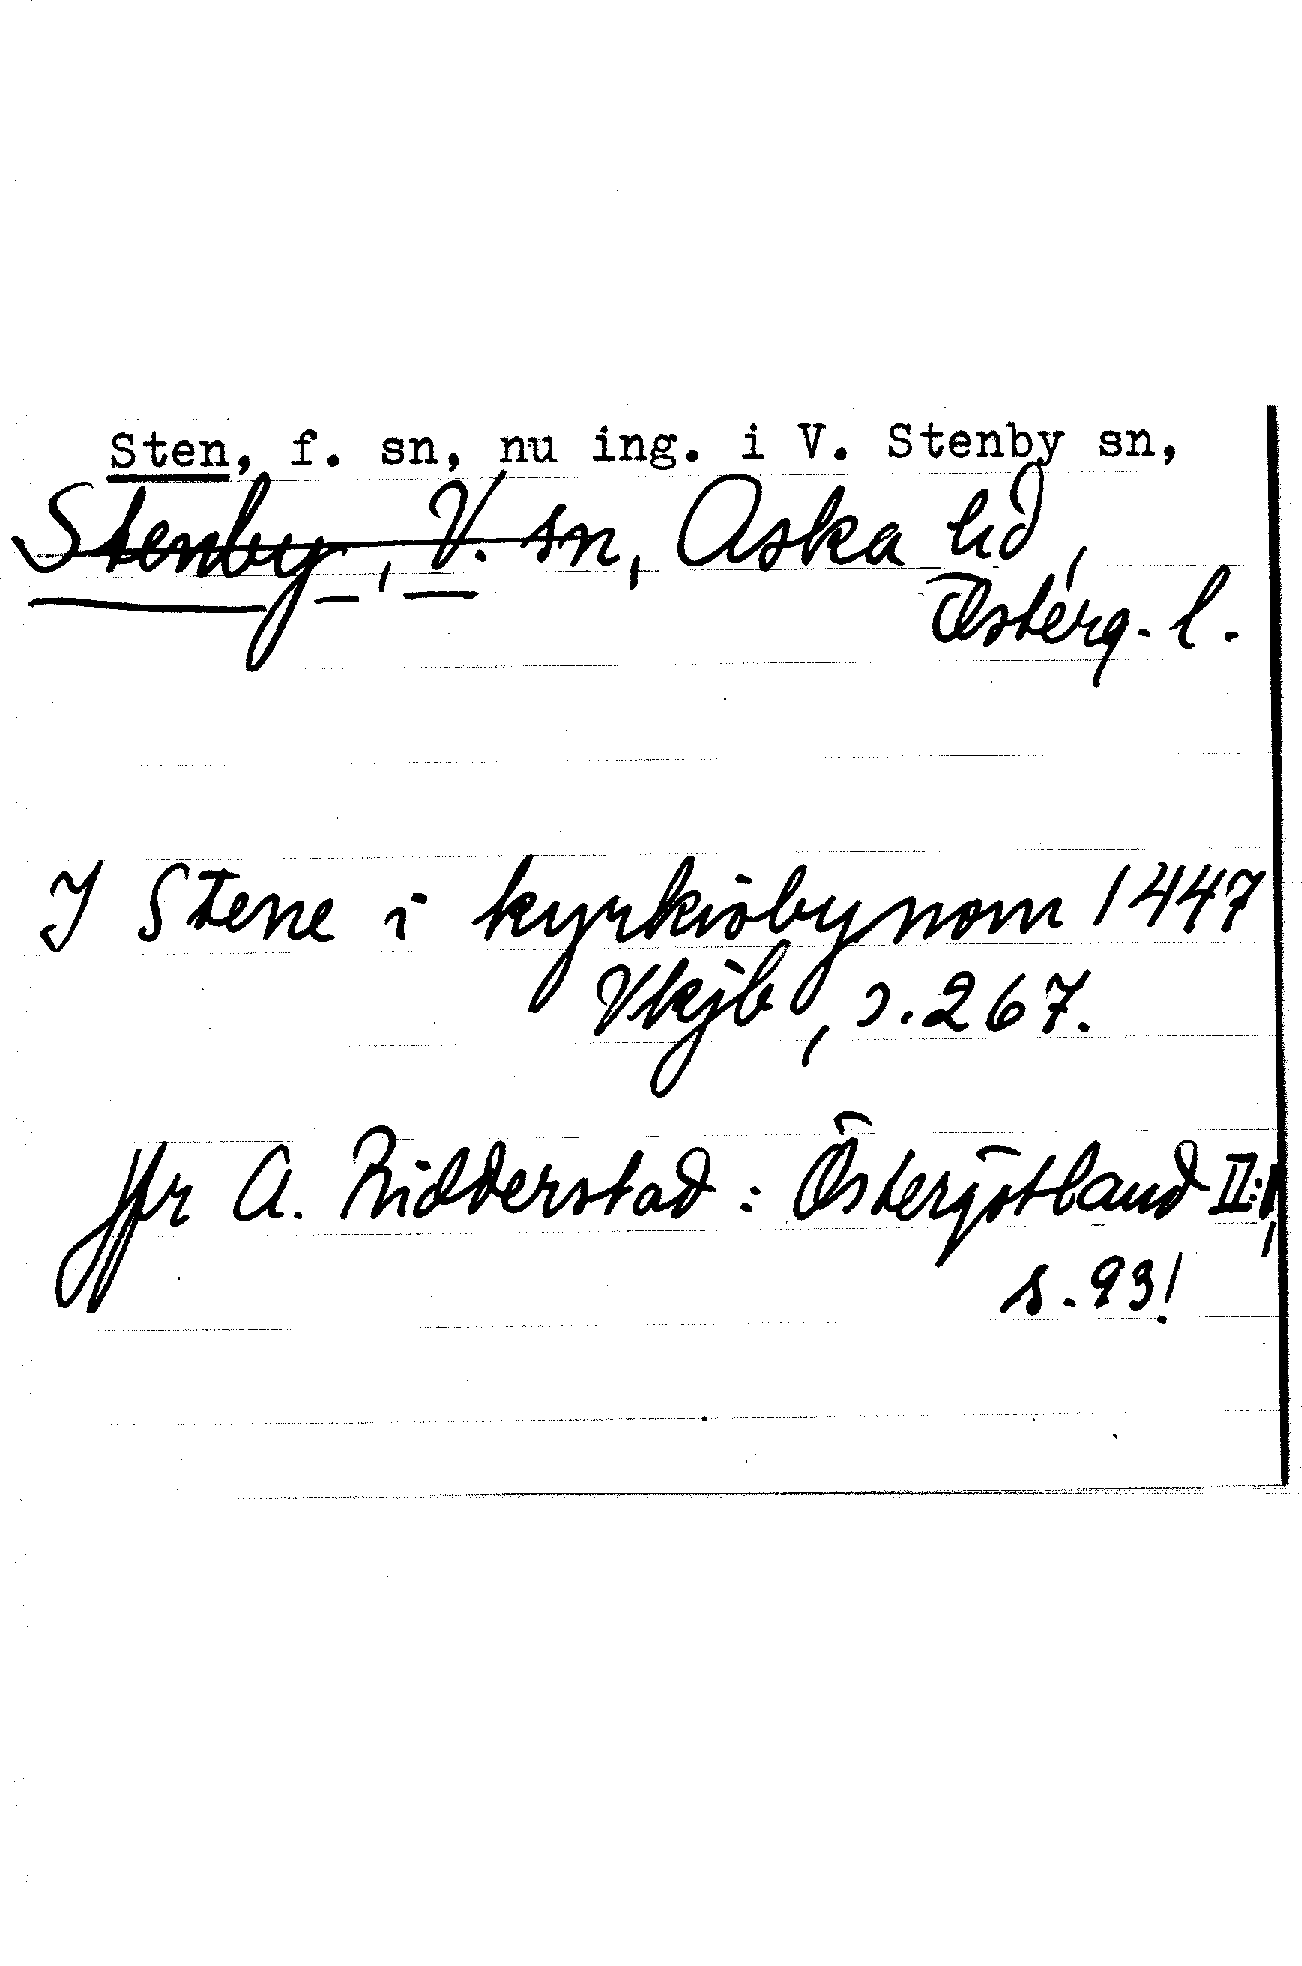 Sten, f. sn, nu ing. i V. Stenby sn,
Stenby, V. sn, Aska hd,
Österg. l.
J Stene i kyrkiobynom 1447
Vkjb, s. 267.
Jfr A. Ridderstad: Östergötland II:1,
s. 93!